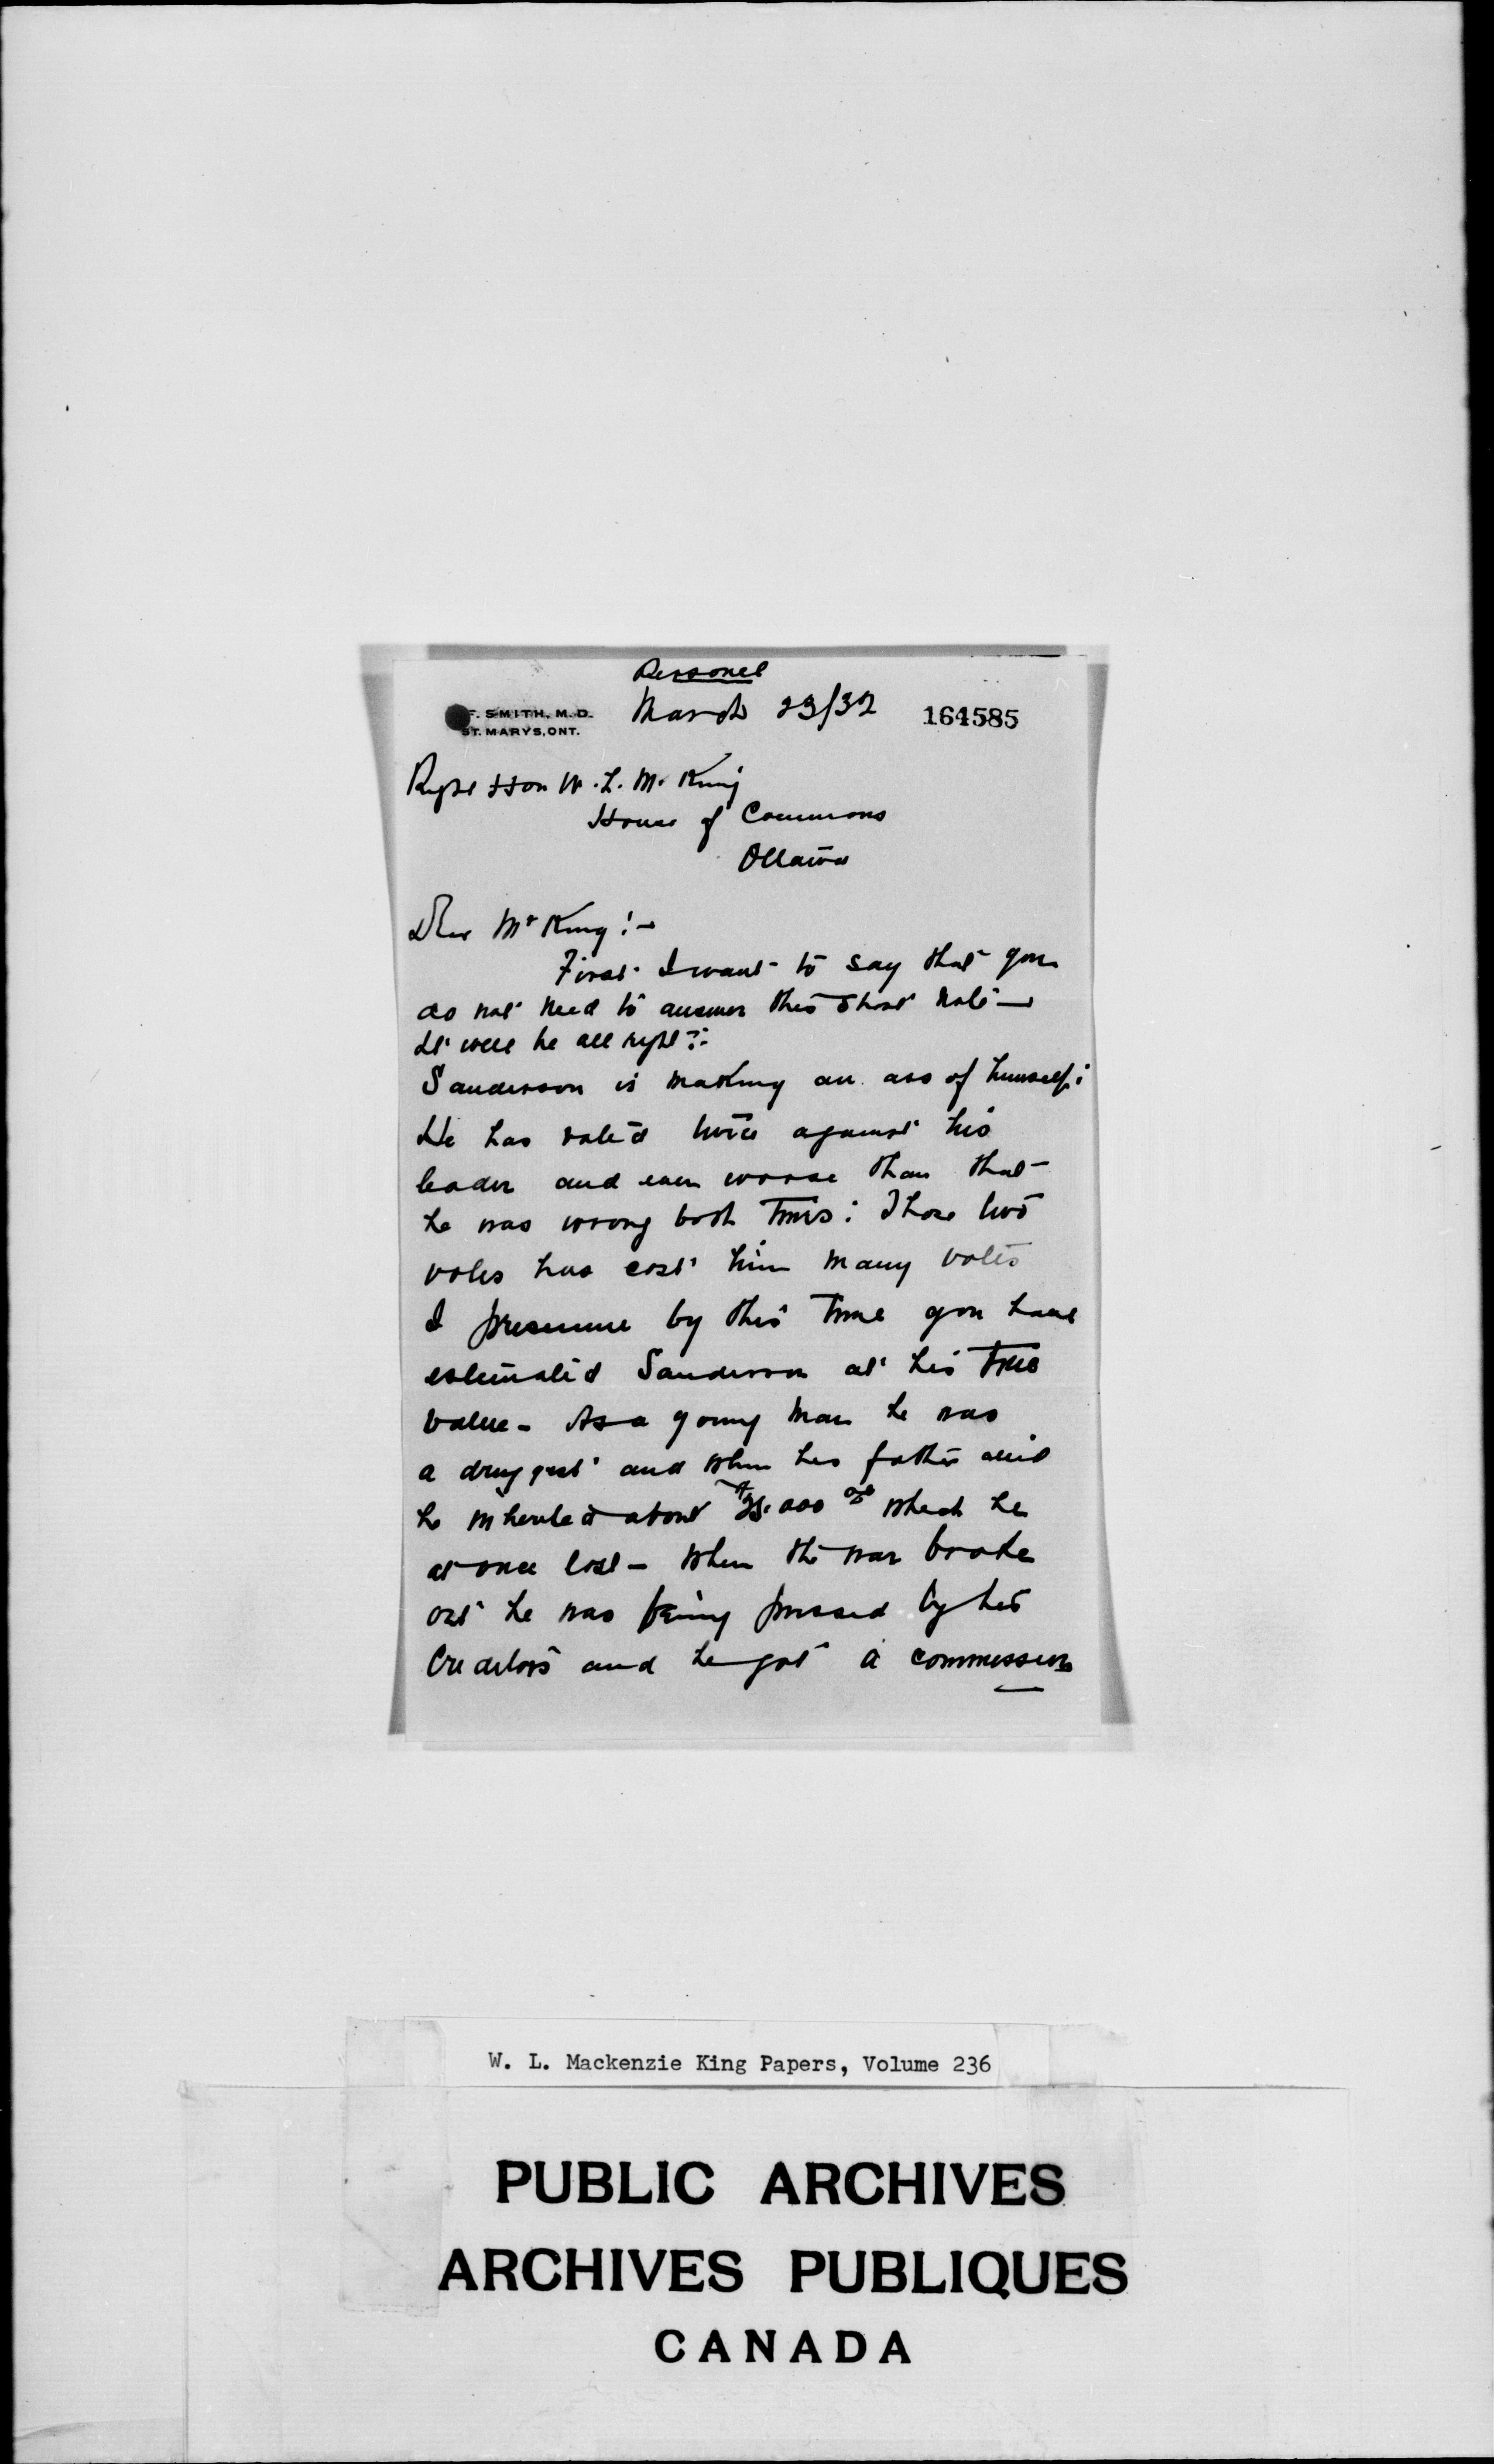 Personel
F. SMITH, M.D.
ST. MARYS, ONT.
March 23/32
164585
Right Hon W. L. M. King
House of Commons
Ottawa
Dear Mr King :-
First I want to say that you
do not need to answer this short note -
It will be all right :-
Sanderson is making an ass of himself :
He has voted twice against his
leader and even worse than that -
he was wrong both times : Those two
votes has cost him many votes
I presume by this time you have
estimated Sanderson at his true
value - As a young man he was
a druggist and when his father died
he inherited about $25,000 00 which he
at once lost - When the war broke
out he was being pressed by his
Creditors and he got a commission
W. L. Mackenzie King Papers, Volume 236
PUBLIC ARCHIVES
ARCHIVES PUBLIQUES
CANADA